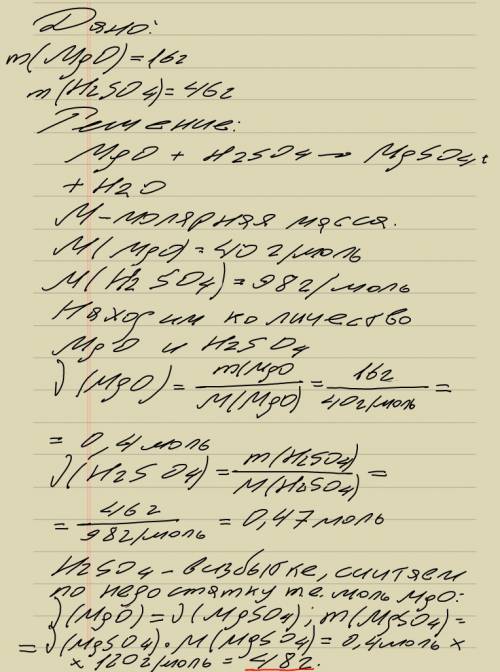 Дано:
m(MgO)=16г
m(H2SO4)=46г
Решение:
MgO + H2SO4 → MgSO4+
+ H2O
M-молярная масса.
M(MgO)=40г/моль
M(H2SO4)=98г/моль
Находим количество
MgO и H2SO4
ν(MgO)= m(MgO / M(MgO) = 16г / 40г/моль =
= 0,4моль
ν(H2SO4)= m(H2SO4) / M(H2SO4) =
= 46г / 98г/моль = 0,47моль
H2SO4-визбытке, считаем
по недостатку те моль MgO:
ν(MgO)=ν(MgSO4); m(MgSO4)=
=ν(MgSO4)·M(MgSO4)=0,4моль×
×120г/моль=48г.